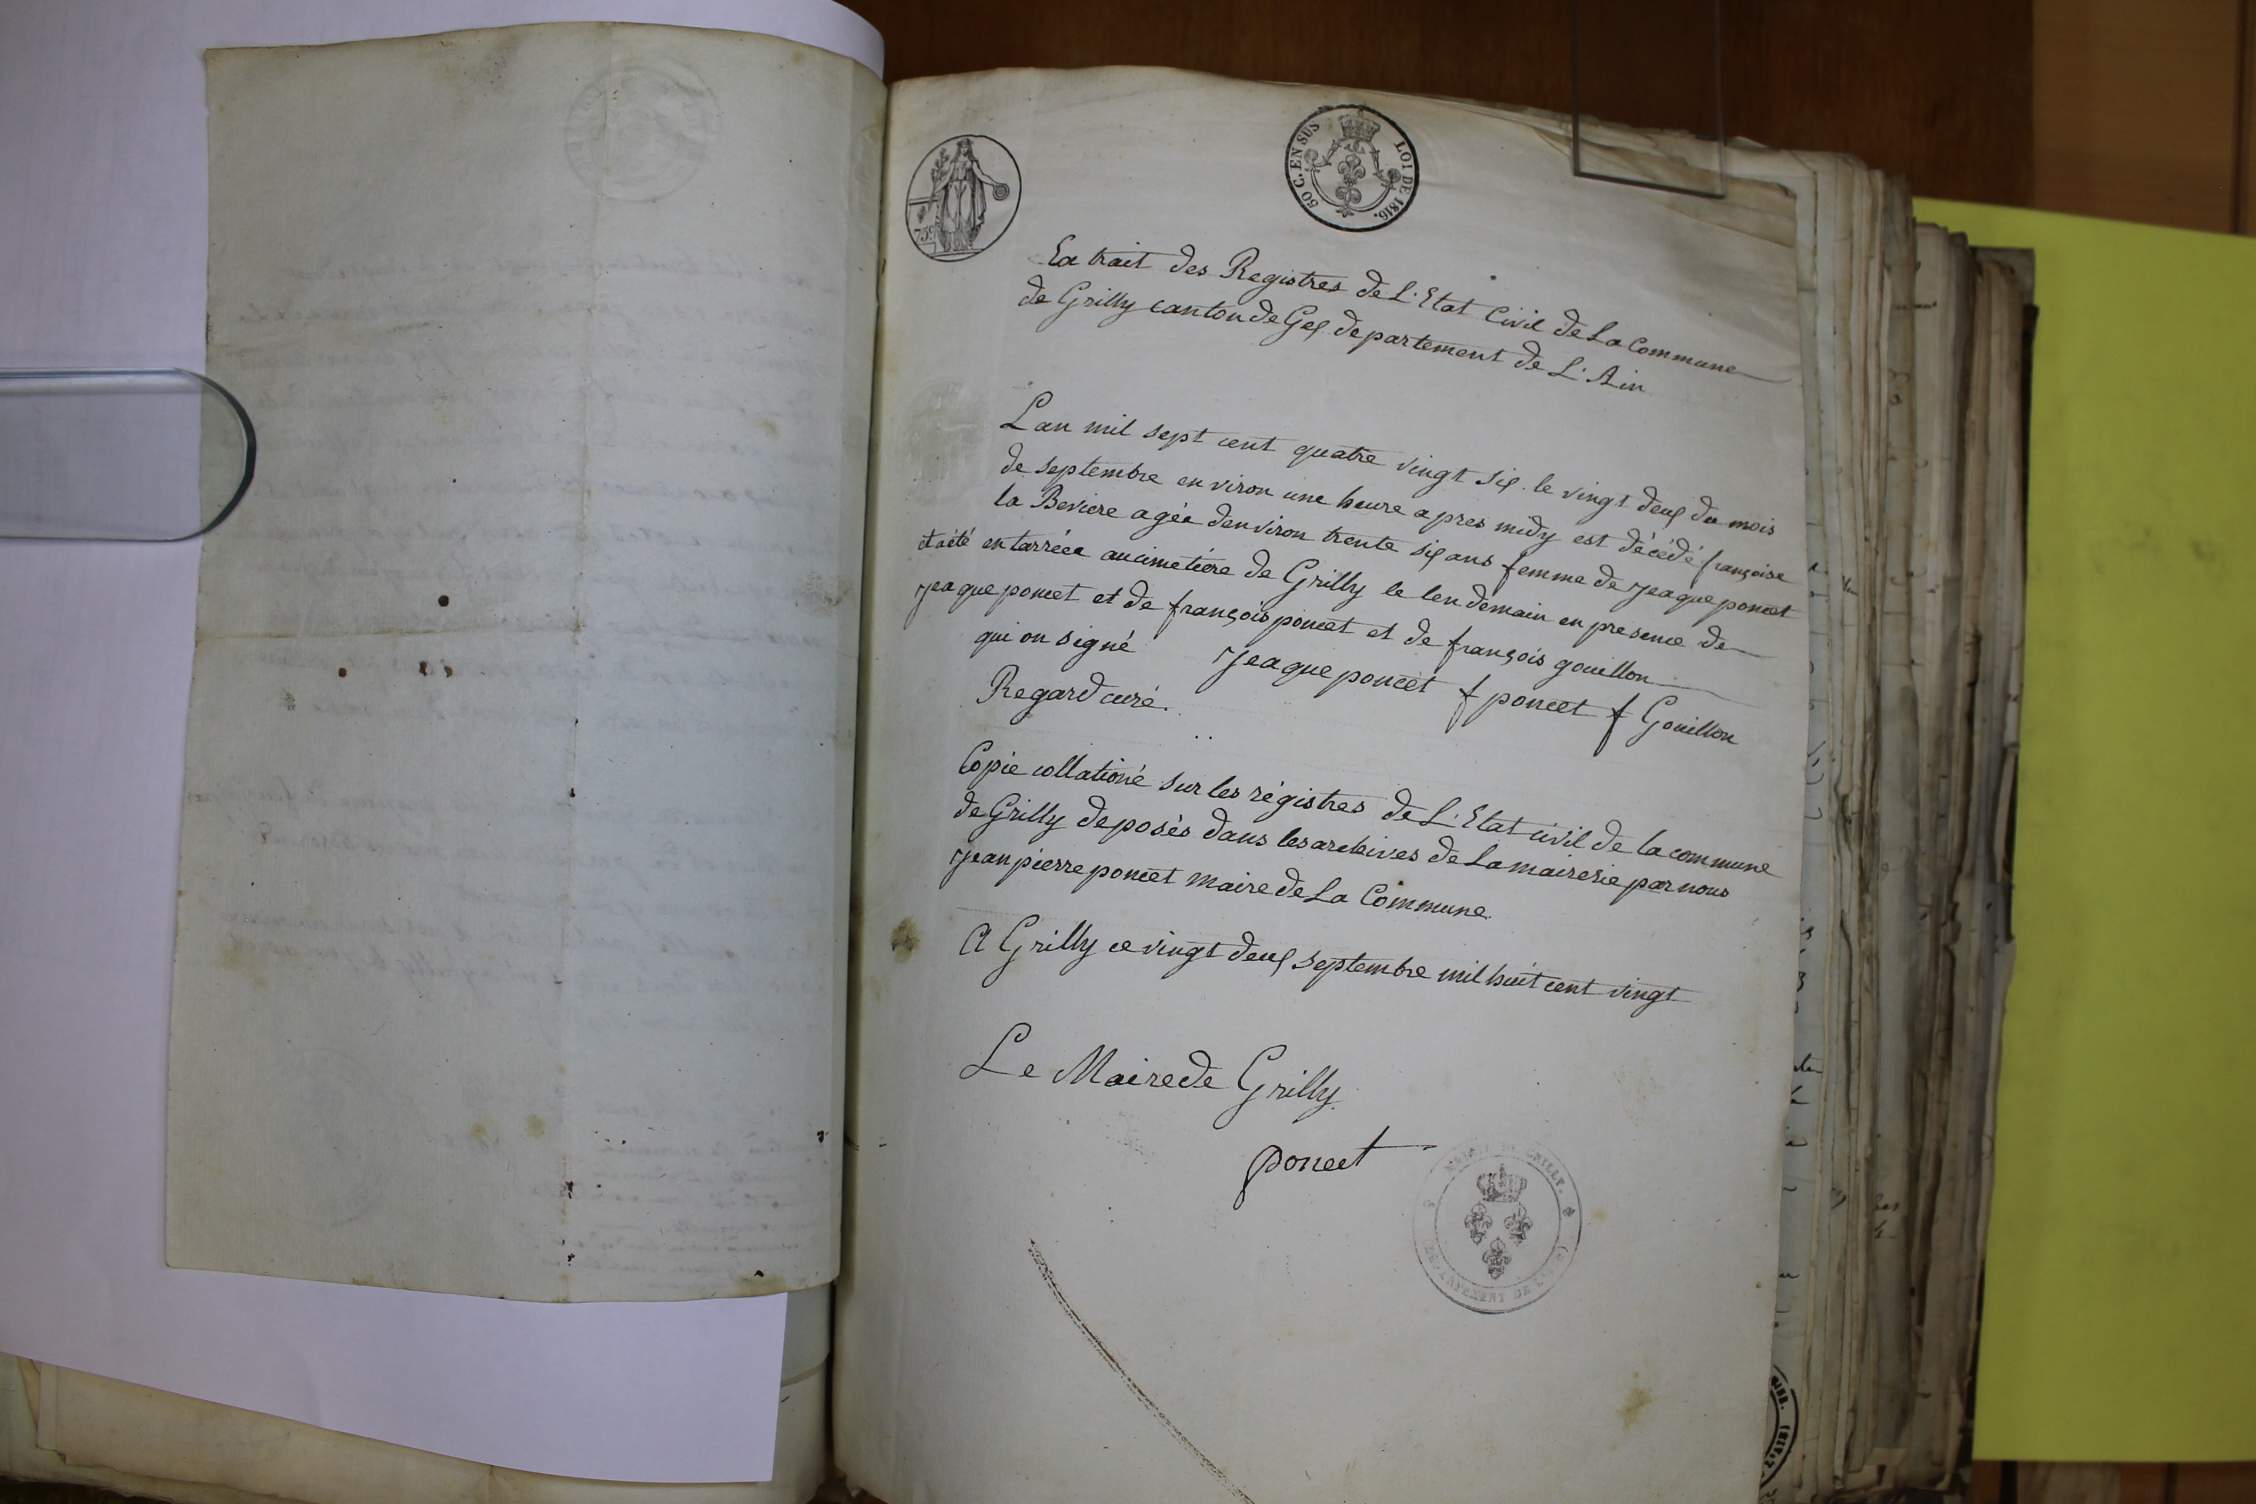 50 C. EN SUS
LOI DE 1816.
759
Extrait des Registres de L'Etat Civil de La Commune
de Grilly canton de Gex departement de L'Ain
L'an mil sept cent quatre vingt six le vingt deux du mois
de septembre environ une heure apres midy est décédé françoise
la Beviere agée denviron trente six ans femme de jeaque poncet
et a été entarréee au cimetiére de Grilly le lendemain en presence de
jeaque poncet et de françois poncet et de françois gouillon
qui on signé jeaque poncet f poncet f Gouillon
Regard curé.
Copie collationé sur les régistres de L'Etat civil de la commune
de Grilly deposés dans les archives de La mairerie par nous
jean pierre poncet maire de La Commune.
A Grilly ce vingt deux septembre mil huit cent vingt
Le Maire de Grilly.
poncet
MAIRIE DE GRILLY.
DÉPARTEMENT DE L'AIN